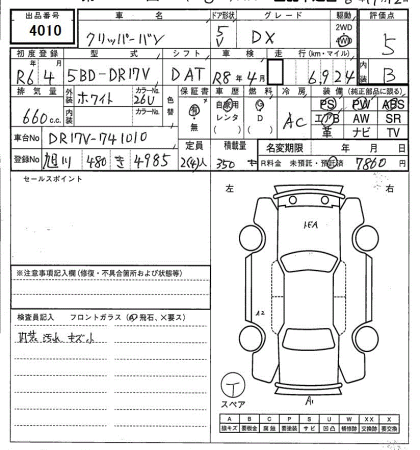 出品番号 車名 ドア形状 グレード 駆動 評価点
4010 クリッパーバン 5V DX 2WD 4WD 5
初度登録 型式 シフト 車検 走行 (km・マイル) 内装
R6 4 5BD-DR17V DAT R8年4月 6,924 B
排気量 外装 カラーNo. 色替 保証書 車歴 燃料 冷房 装備 (純正部品に限る)
660c.c. ホワイト 26U 有・無 自家用 レンタ G D AC PS PW ABS
内装 カラーNo. エアB AW SR
革 ナビ TV
車台No DR17V-741010 定員 積載量 名変期限 年 月 日
登録No 旭川 480 き 4985 2(4)人 350 R料金 未預託・預託済 7860円
セールスポイント
左 右
※注意事項記入欄(修復・不具合箇所および状態等)
検査員記入 フロントガラス (飛石、×要ス)
内装 汚れ キズ小
A2
A1
スペア
A B C P S U W X XX
線キズ 要板金 腐蝕 要塗装 サビ 凹凸 補修跡 要交換